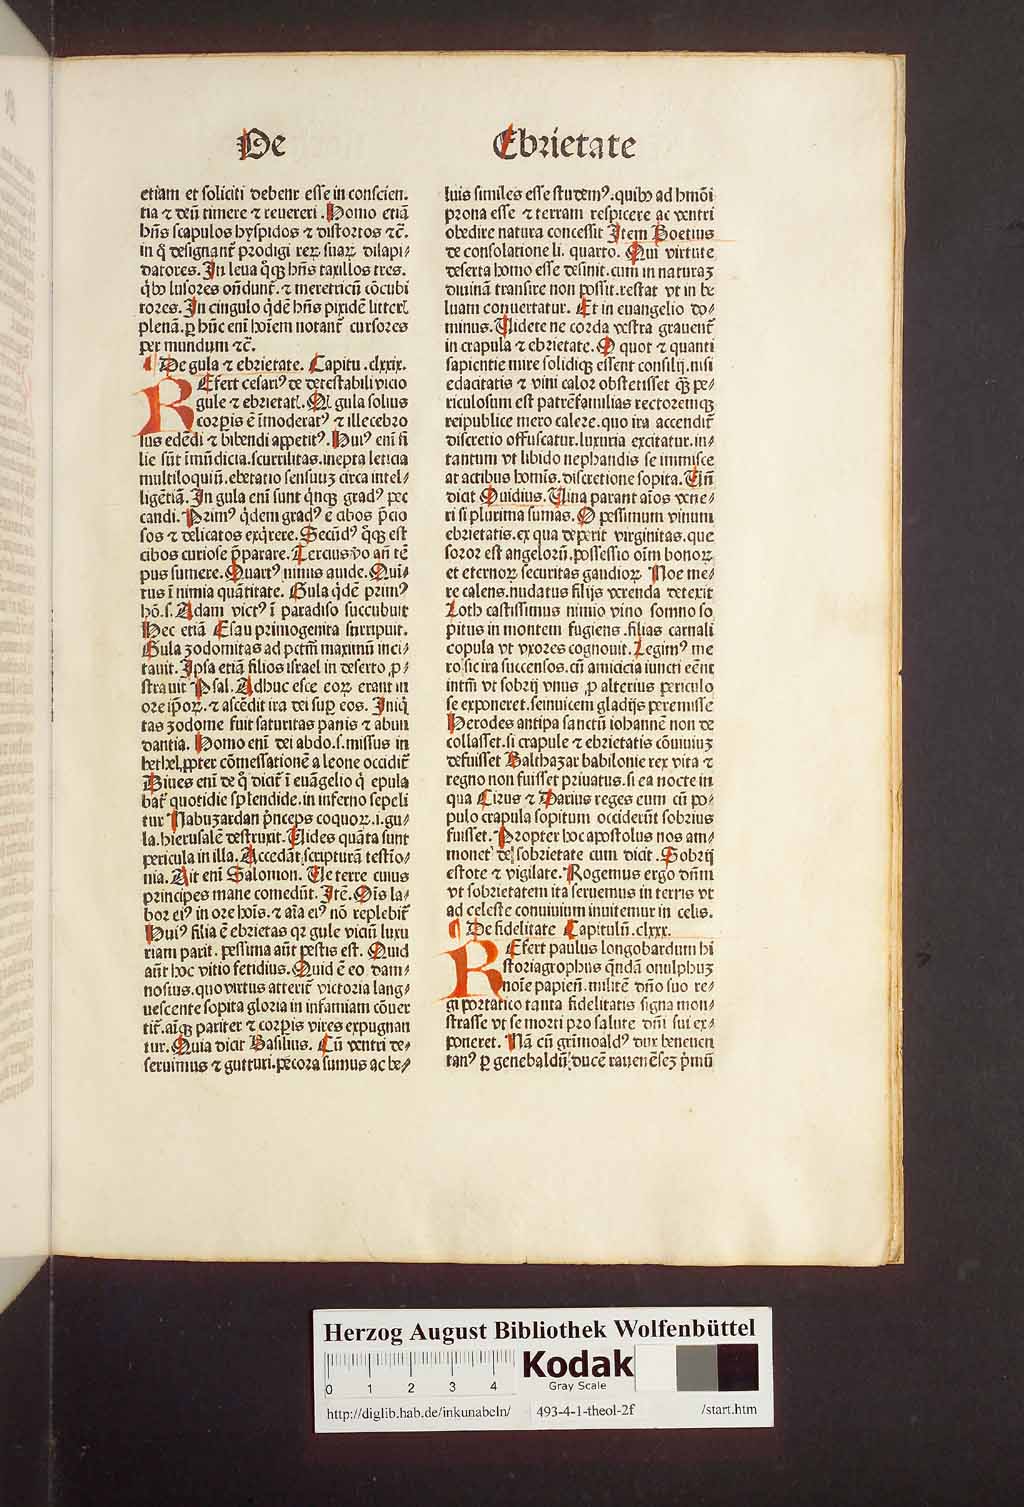 De Ebrietate
etiam et soliciti debent esse in conscien.
tia ⁊ deū timere ⁊ reuereri. Homo etiā
hñs scapulos hyspidos ⁊ distortos ⁊c̄.
in q̊ designant᷑ prodigi reꝝ suaꝝ dilapi⸗
datores. In leua q̊qꝫ hñs taxillos tres.
q̊bꝰ lusores on̄dunt᷑. ⁊ meretricū cōcubi
tores. In cingulo q̇dē hñs pixidē litterꝭ
plenā. ꝑ hūc eni hoīem notant᷑ cursores
per mundum ⁊c̄.
¶ De gula ⁊ ebrietate. Capitu. clxxix.
REfert cesariꝰ de detestabili vicio
gule ⁊ ebrietatꝭ. Qꝛ gula solius
corpis ē īmoderatꝰ ⁊ illecebro
sus edēdi ⁊ bibendi appetitꝰ. Huiꝰ eni fi
lie sūt īmūdicia. scurrilitas. inepta leticia
multiloquiū. ebetatio sensuuꝫ circa intel⸗
ligētiā. In gula eni sunt q̇nqꝫ gradꝰ pec
candi. Primꝰ q̇dem gradꝰ ē cibos p̄cio
sos ⁊ delicatos exq̇rere. Secūdꝰ q̊qꝫ est
cibos curiose p̄parare. Tercius ꝟo añ tē
pus sumere. Quartꝰ nimis auide. Qui⸗
tus ī nimia quātitate. Gula q̇dē primꝰ
hō. s. Adam victꝰ ī paradiso succubuit
Hec etiā Esau primogenita surripuit.
Gula zodomitas ad pctm̄ maximū inci⸗
tauit. Ipsa etiā filios israel in deserto ꝓ⸗
strauit Psal. Adhuc esce eoꝝ erant in
ore ip̄oꝝ. ⁊ ascēdit ira dei suꝑ eos. Iniq̇
tas zodome fuit saturitas panis ⁊ abun
dantia. Homo eni dei abdo. s. missus in
bethel, ꝓpter cōmessationē a leone occidit᷑
Diues eni de q̊ dicit᷑ ī euāgelio q̇ epula
bat᷑ quotidie splendide. in inferno sepeli
tur Nabuzardan p̄nceps coquoꝝ. i. gu⸗
la. hierusalē destruxit. Uides quāta sunt
pericula in illa. Accedāt scripturā testio⸗
nia. Ait eni Salomon. Ue terre cuius
principes mane comedūt. Itē. Oīs la⸗
bor eiꝰ in ore hoīs. ⁊ aīa eiꝰ nō replebit᷑
Huiꝰ filia ē ebrietas qꝛ gule viciū luxu
riam parit. pessima aūt pestis est. Quid
aūt hoc vitio fetidius. Quid ē eo dam⸗
nosius. quo virtus atterit᷑ victoria lang⸗
uescente sopita gloria in infamiam cōuer
tit᷑. aīqꝫ pariter ⁊ corpis vires expugnan
tur. Quia dicit Basilius. Cū ventri de⸗
seruimus ⁊ gutturi. pecora sumus ac be⸗
luis similes esse studemꝰ. quibꝰ ad hmōi
prona esse ⁊ terram respicere ac ventri
obedire natura concessit Item Boetius
de consolatione li. quarto. Qui virtute
deserta homo esse desinit. cum in naturaꝫ
diuinā transire non possit. restat vt in be
luam conuertatur. Et in euangelio do⸗
minus. Uidete ne corda vestra grauent᷑
in crapula ⁊ ebrietate. O quot ⁊ quanti
sapientie mire solidiqꝫ essent consilij. nisi
edacitatis ⁊ vini calor obstetisset qꝫ pe⸗
riculosum est patrēfamilias rectoremqꝫ
reipublice mero calere. quo ira accendit᷑
discretio offuscatur. luxuria excitatur. in⸗
tantum vt libido nephandis se immisce
at actibus homīs. discretione sopita. Uñ
dicit Ouidius. Uina parant aīos vene⸗
ri si plurima sumas. O pessimum vinum
ebrietatis. ex qua deperit virginitas. que
soror est angelorū. possessio oīm bonoꝝ
et eternoꝝ securitas gaudioꝝ Noe me⸗
re calens. nudatus filijs verenda detexit
Loth castissimus nimio vino somno so
pitus in montem fugiens. filias carnali
copula vt vxores cognouit. Legimꝰ me
ro sic ira succensos. cū amicicia iuncti eēnt
intm̄ vt sobrij vnus ꝓ alterius periculo
se exponeret. seinuicem gladijs peremisse
Herodes antipa sanctū iohannē non de
collasset. si crapule ⁊ ebrietatis cōuiuiuꝫ
defuisset Balthazar babilonie rex vita ⁊
regno non fuisset priuatus. si ea nocte in
qua Cirus ⁊ Darius reges eum cū po⸗
pulo crapula sopitum occiderūt sobrius
fuisset. Propter hoc apostolus nos am⸗
monet de sobrietate cum dicit. Sobrij
estote ⁊ vigilate. Rogemus ergo dn̄m
vt sobrietatem ita seruemus in terris vt
ad celeste conuiuium inuitemur in celis.
¶ De fidelitate Capitulū. clxxx.
REfert paulus longobardum hi
storiagrophus q̇ndā onulphuꝫ
noīe papieñ. militē dn̄o suo re⸗
gi portatico tanta fidelitatis signa mon⸗
strasse vt se morti pro salute dn̄i sui ex⸗
poneret. Nā cū grimoaldꝰ dux beneuen
tanꝰ ꝑ genebaldū ducē rauenēseꝫ p̄mū
Herzog August Bibliothek Wolfenbüttel
0 1 2 3 4
Kodak
Gray Scale
http://diglib.hab.de/inkunabeln/ 493-4-1-theol-2f /start.htm